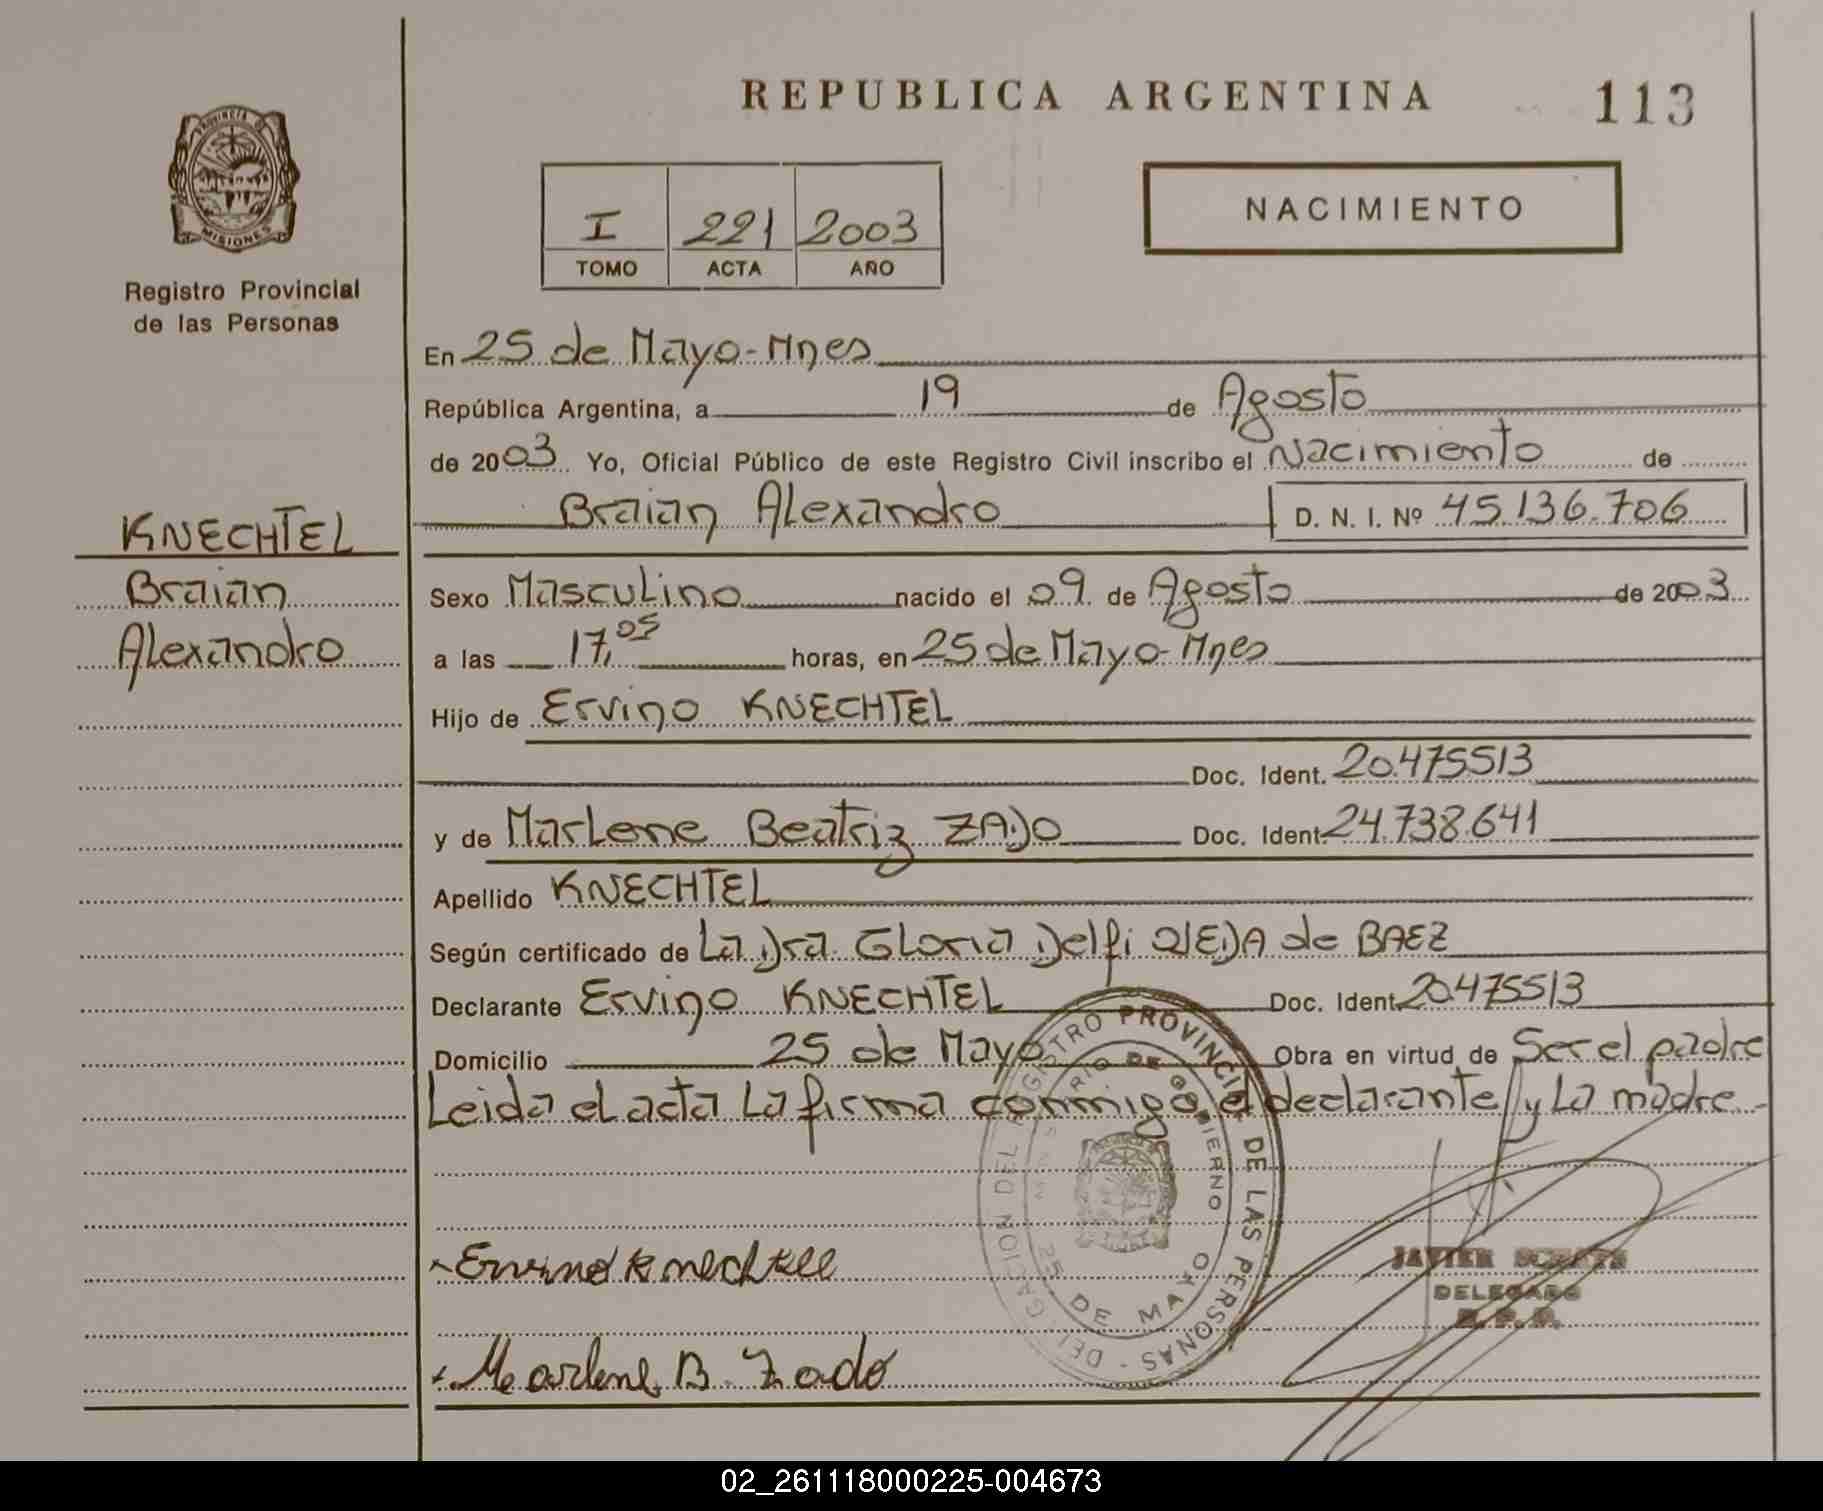 REPUBLICA ARGENTINA
113
PROVINCIA DE
MISIONES
Registro Provincial
de las Personas
I 221 2003
TOMO ACTA AÑO
NACIMIENTO
En 25 de Mayo-Mnes
República Argentina, a 19 de Agosto
de 2003 Yo, Oficial Público de este Registro Civil inscribo el Nacimiento de
Braian Alexandro D. N. I. Nº 45.136.706
KNECHTEL
Braian
Alexandro
Sexo Masculino nacido el 09 de Agosto de 2003
a las 17,05 horas, en 25 de Mayo-Mnes
Hijo de Ervino KNECHTEL
Doc. Ident. 20.475513
y de Marlene Beatriz ZADO Doc. Ident. 24.738.641
Apellido KNECHTEL
Según certificado de La Dra. Gloria Delfi OJEDA de BAEZ
Declarante Ervino KNECHTEL Doc. Ident. 20.475513
Domicilio 25 de Mayo Obra en virtud de Ser el padre
Leida el acta La firma conmigo, el declarante y La madre
DELEGACION DEL REGISTRO PROVINCIAL DE LAS PERSONAS
MINISTERIO DE GOBIERNO
25 DE MAYO
Ervino Knechtell
JAVIER
DELEGADO
Marlene B. Zado
02_261118000225-004673